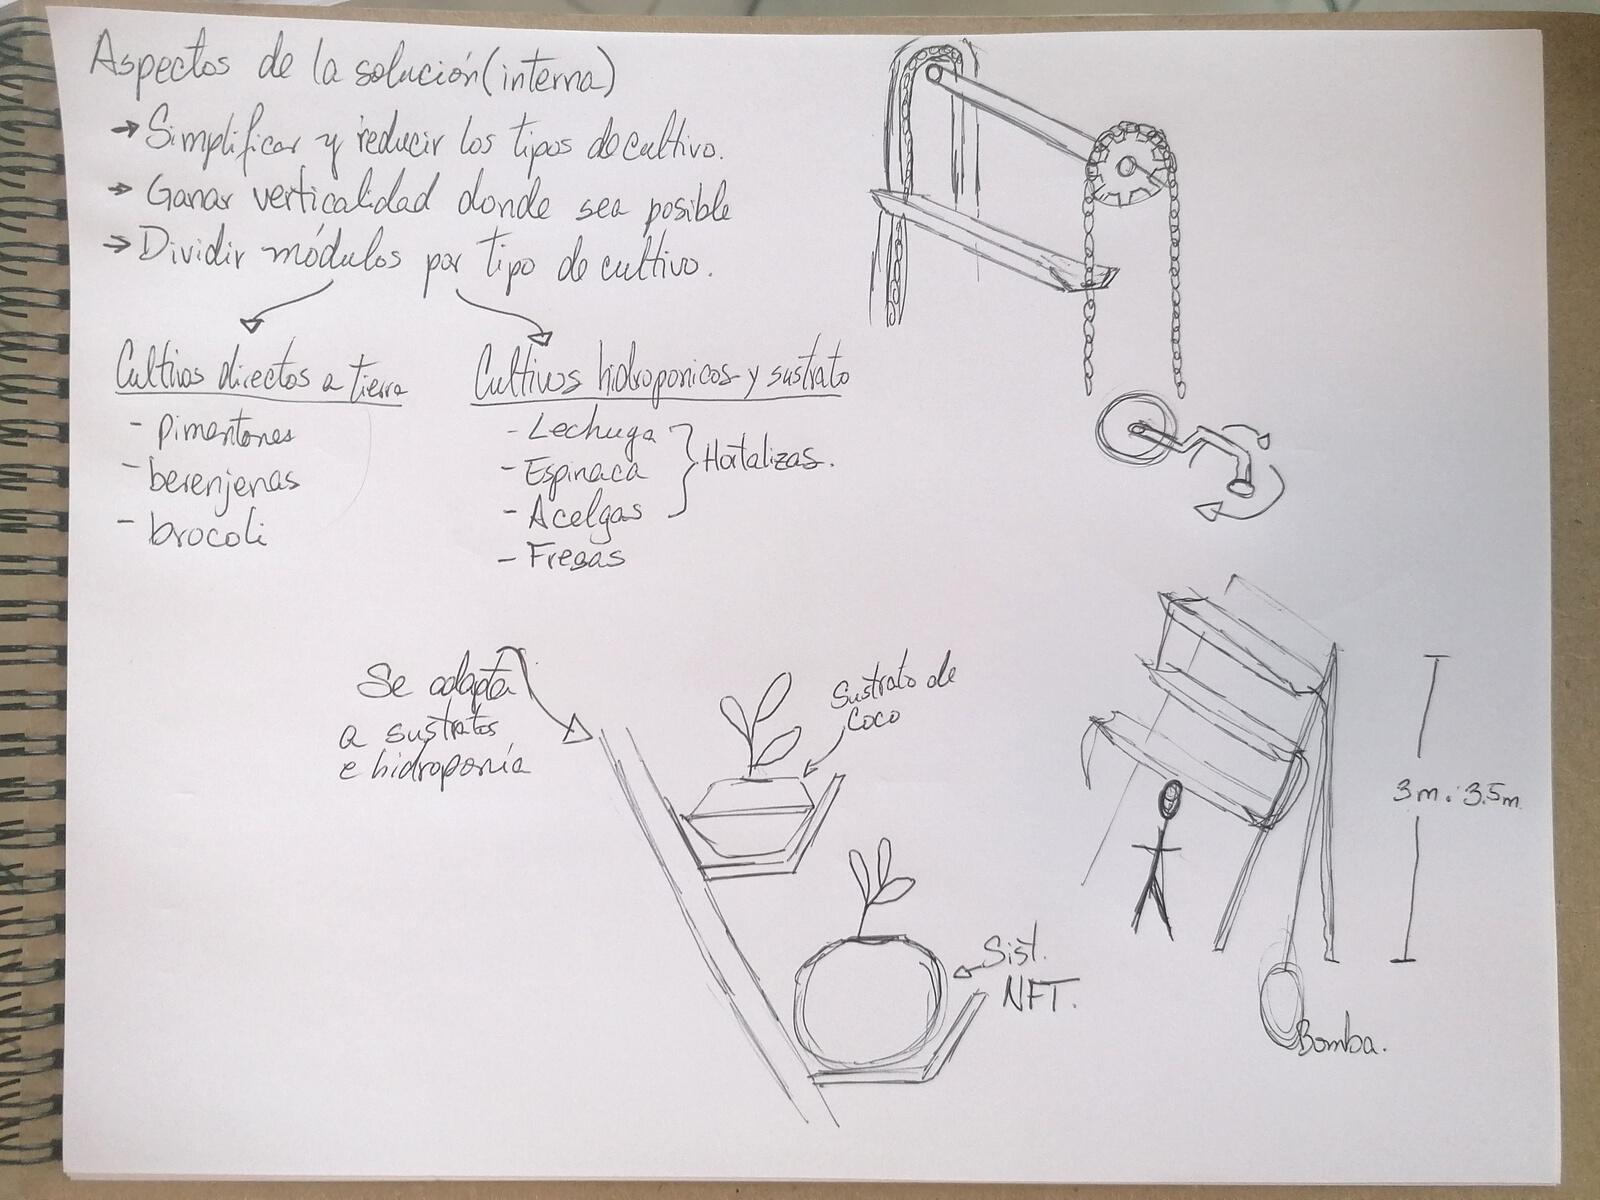 Aspectos de la solución (interna)
→ Simplificar y reducir los tipos de cultivo.
→ Ganar verticalidad donde sea posible
→ Dividir módulos por tipo de cultivo.
Cultivos directos a tierra
- pimentones
- berenjenas
- brocoli
Cultivos hidroponicos y sustrato
- Lechuga
- Espinaca
- Acelgas
- Fresas
Hortalizas.
Se adapta
a sustratos
e hidroponía
Sustrato de
Coco
Sist.
NFT.
3m. 3.5m
Bomba.